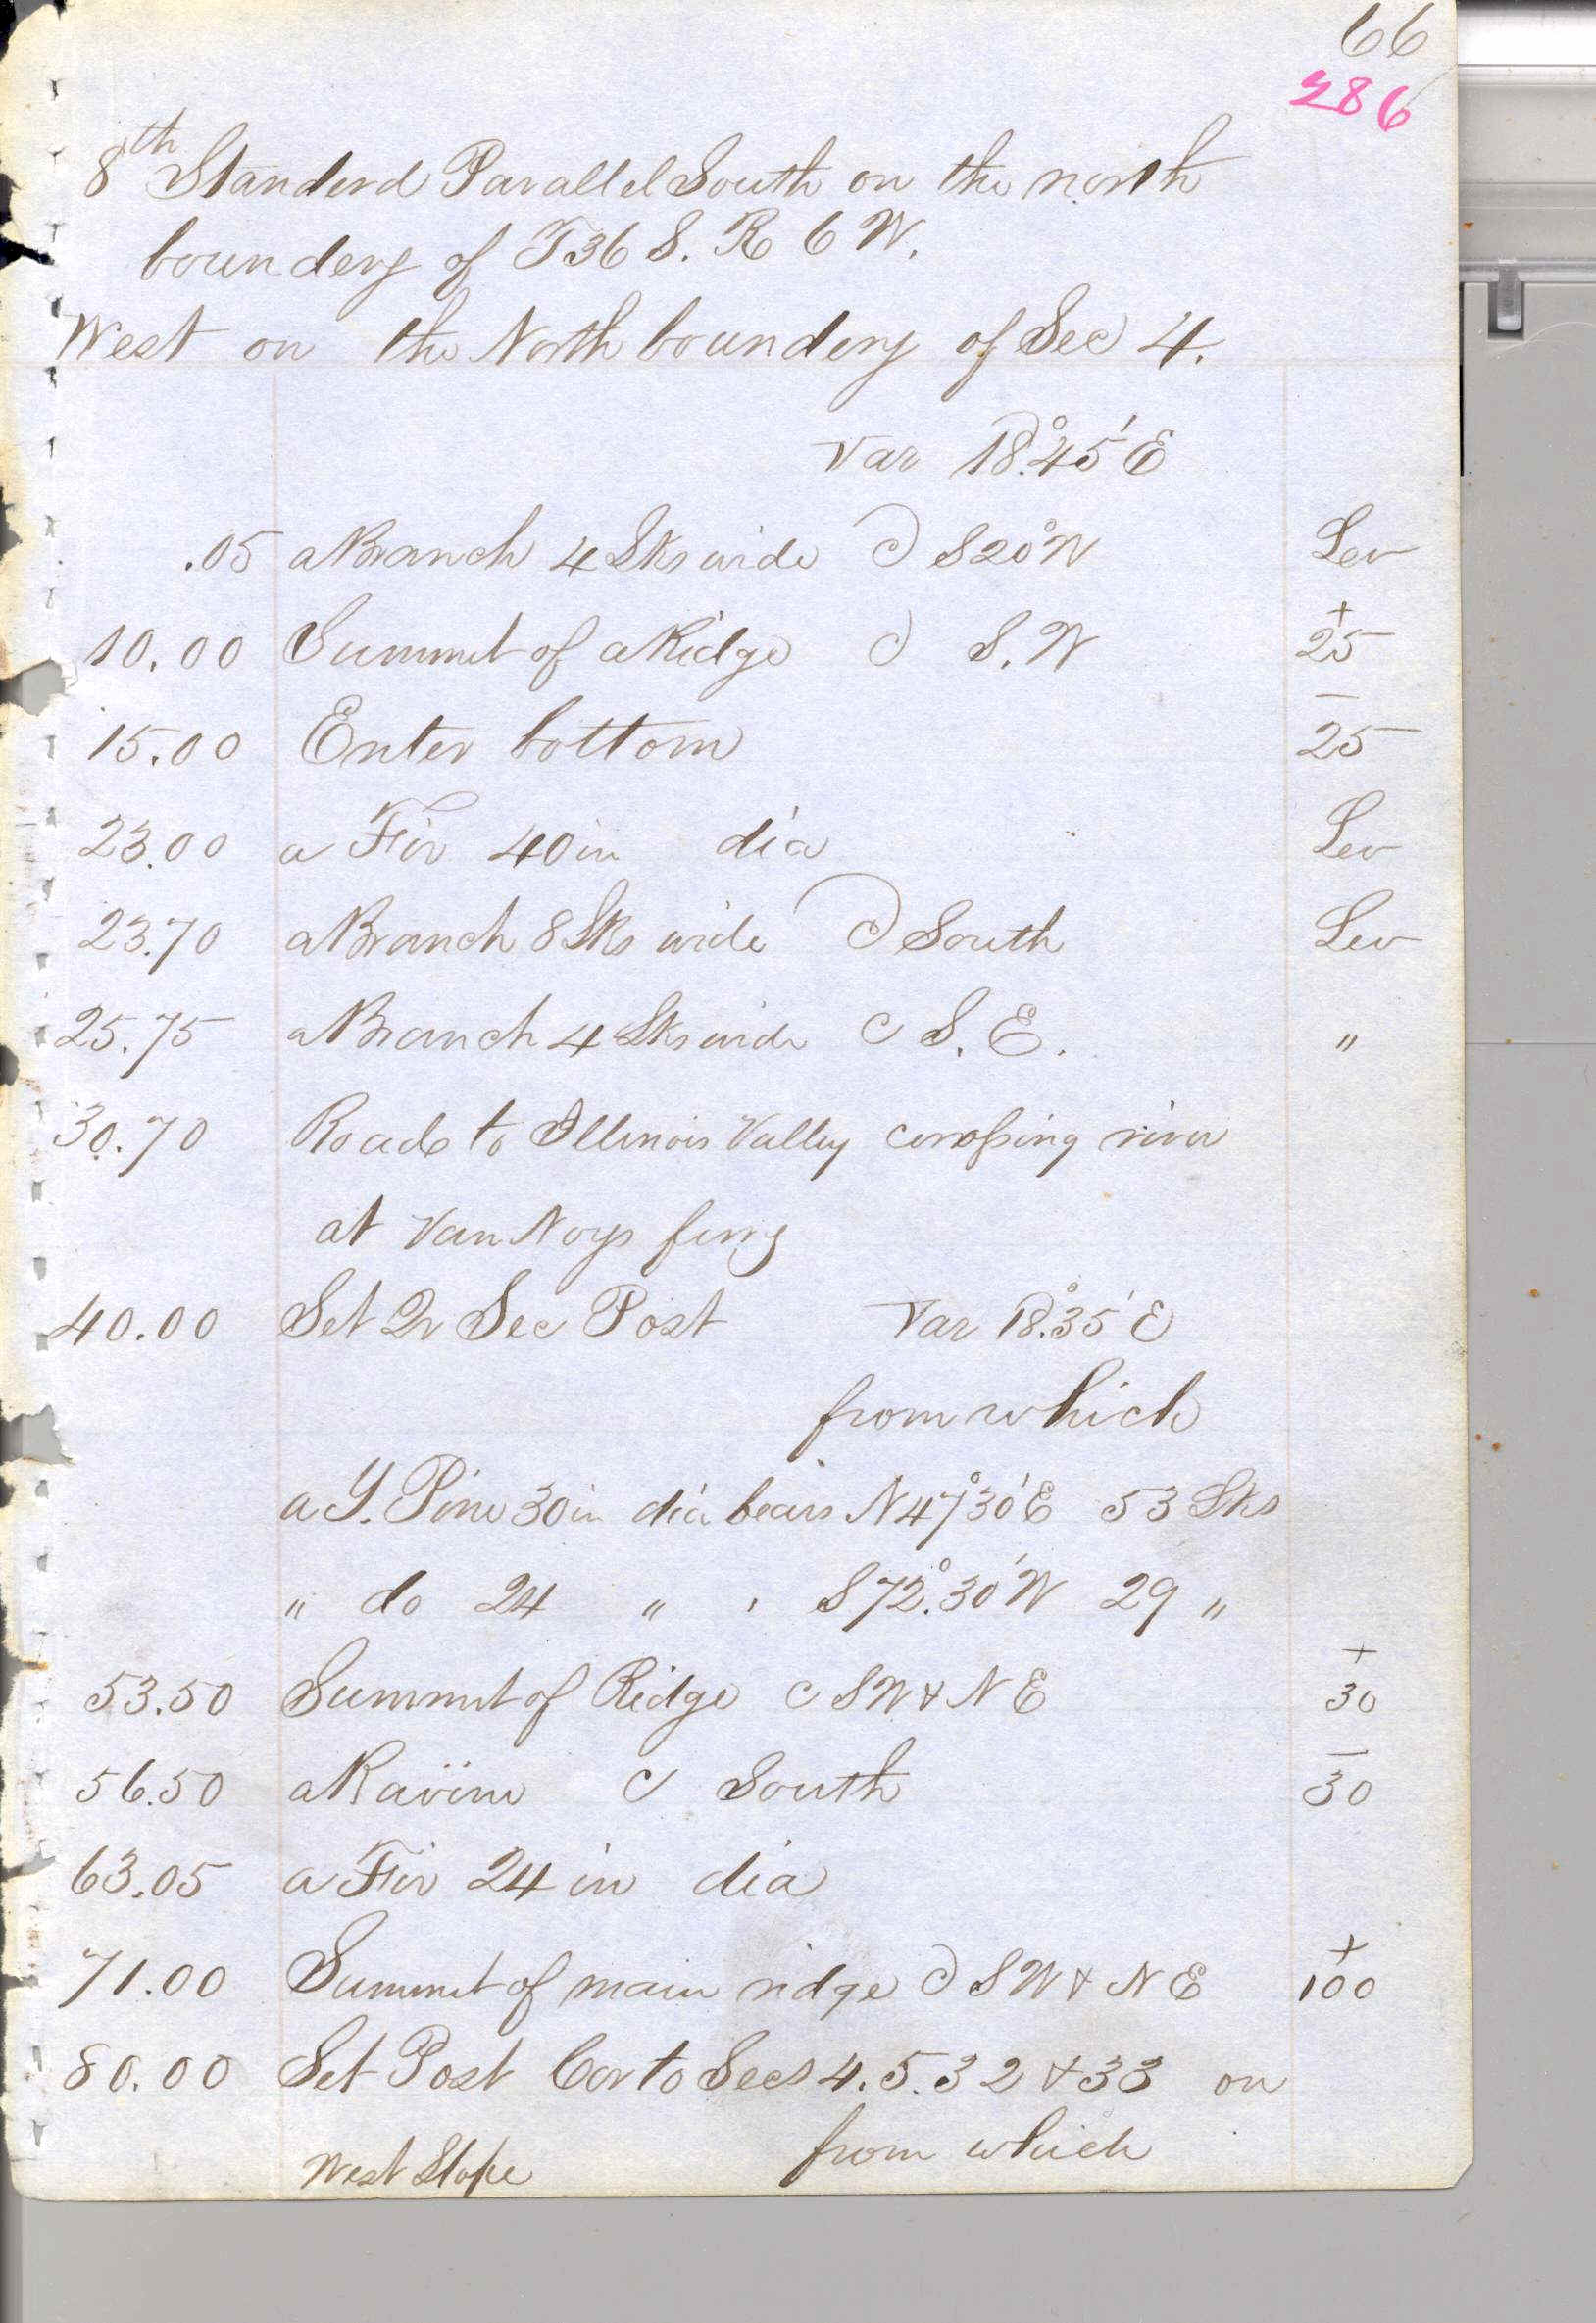 66
286
8th Standerd Parallel South on the north
boundery of T36 S. R 6 W.
West on the North boundery of Sec 4.
Var 18°.45' E
.05 a Branch 4 Lks wide C S20°W Lev
10.00 Summit of a Ridge C S.W +25
15.00 Enter bottom -25
23.00 a Fir 40 in dia Lev
23.70 a Branch 8 Lks wide C South Lev
25.75 a Branch 4 Lks wide C S.E. "
30.70 Road to Illinois Valley crossing river
at Van Noys ferry
40.00 Set Qr Sec Post Var 18°.35' E
from which
a Y. Pine 30 in dia bears N47°30'E 53 Lks
" do 24 " " S72°.30'W 29 "
53.50 Summit of Ridge C SW & NE +30
56.50 a Ravine C South -30
63.05 a Fir 24 in dia
71.00 Summit of main ridge C SW & NE +100
80.00 Set Post Cor to Secs 4.5.32 & 33 on
West Slope from which